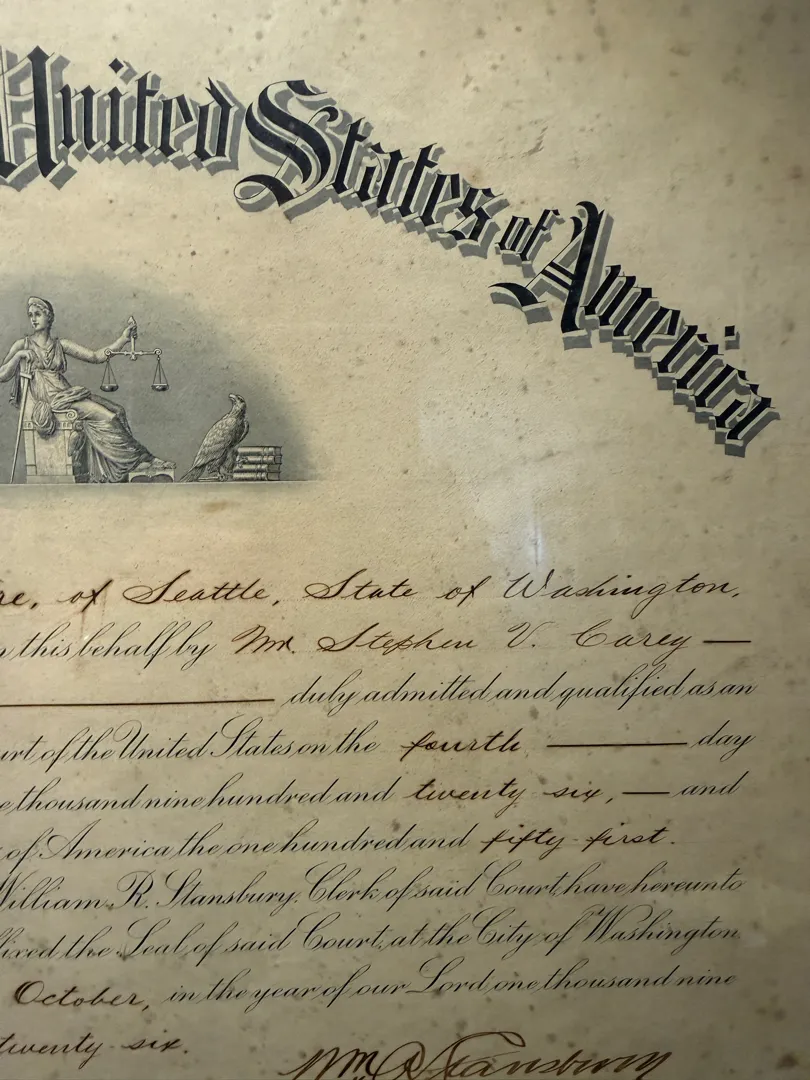 United States of America
re, of Seattle, State of Washington,
n this behalf by Mr. Stephen V. Carey —
duly admitted and qualified as an
urt of the United States on the fourth — day
e thousand nine hundred and twenty six, — and
of America the one hundred and fifty-first.
William R. Stansbury, Clerk of said Court, have hereunto
fixed the Seal of said Court, at the City of Washington
October, in the year of our Lord one thousand nine
twenty six.
Wm R Stansbury